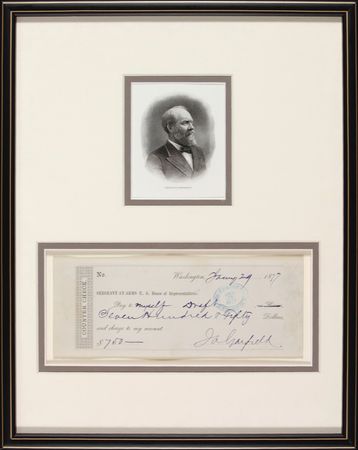 No.
Washington, Jany 29 1877
COUNTER CHECK.
SERGEANT AT ARMS U. S. House of Representatives
Pay to myself Draft
Seven Hundred & Fifty Dollars,
and charge to my account
$750 — J A Garfield.